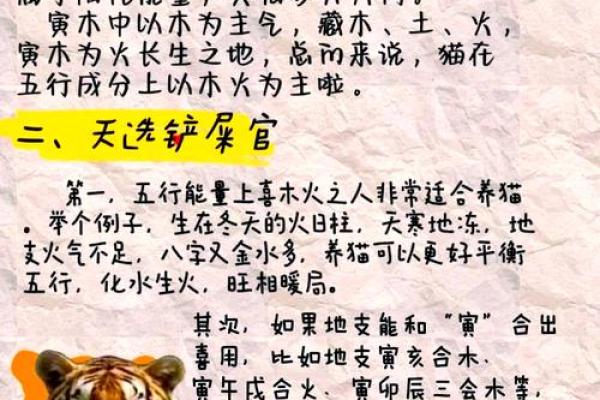 寅木中以木为主气，藏木、土、火，
寅木为火长生之地，总的来说，猫在
五行成分上以木火为主啦。
二、天选铲屎官
第一，五行能量上喜木火之人非常适合养猫
。举个例子，生在冬天的火日柱，天寒地冻，地
支火气不足，八字又金水多，养猫可以更好平衡
五行，化水生火，旺相暖局。
其次，如果地支能和“寅”合出
喜用，比如地支寅亥合木、
寅午戌合火、寅卯辰三会木等，